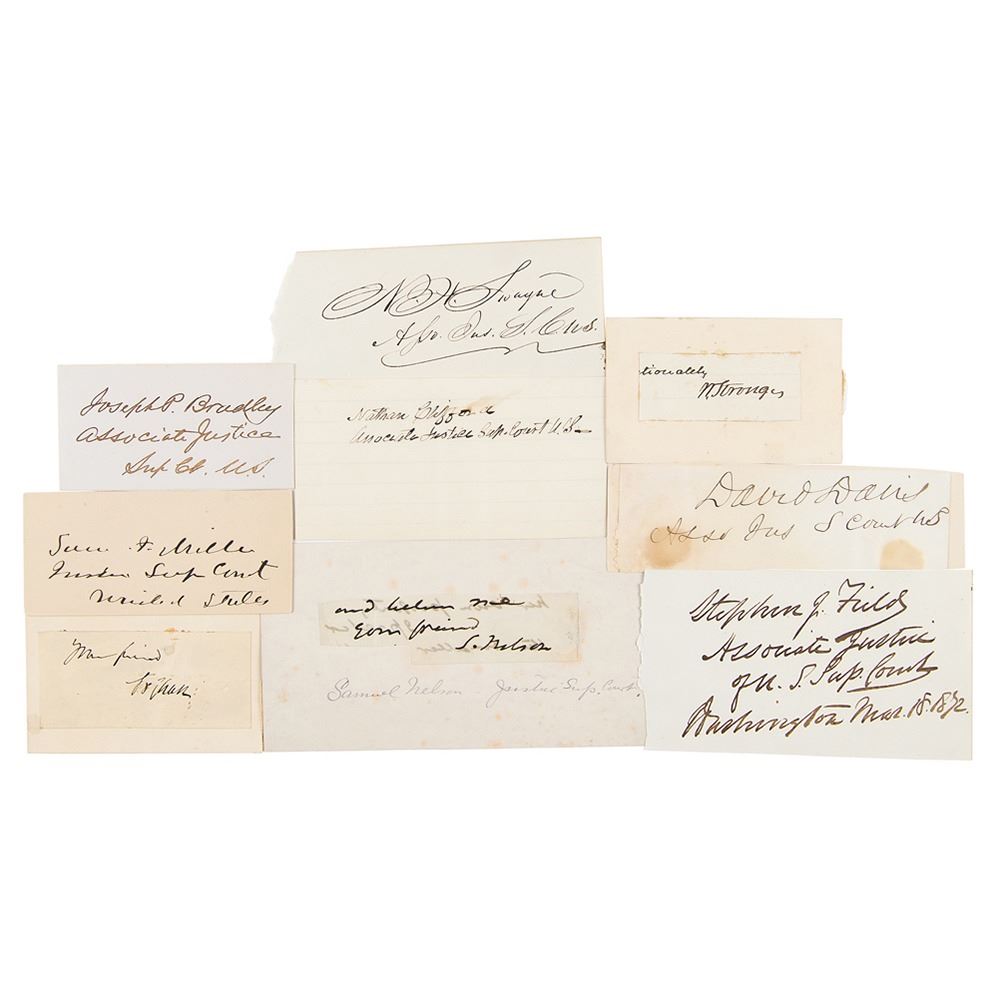 N. H. Swayne
Asso. Jus. S. C. U.S.
Joseph P. Bradley
Associate Justice
Sup Ct. U.S.
Nathan Clifford
Associate Justice Sup. Court U.S.
tionately
W. Strong
David Davis
Asso Jus S Court U S
Sam. F. Miller
Justice Sup Court
United States
Your friend
and believe me
Your friend
S. Nelson
Samuel Nelson Justice Sup. Court
Stephen J. Field
Associate Justice
of U. S. Sup. Court
Washington Mar. 18. 1872.